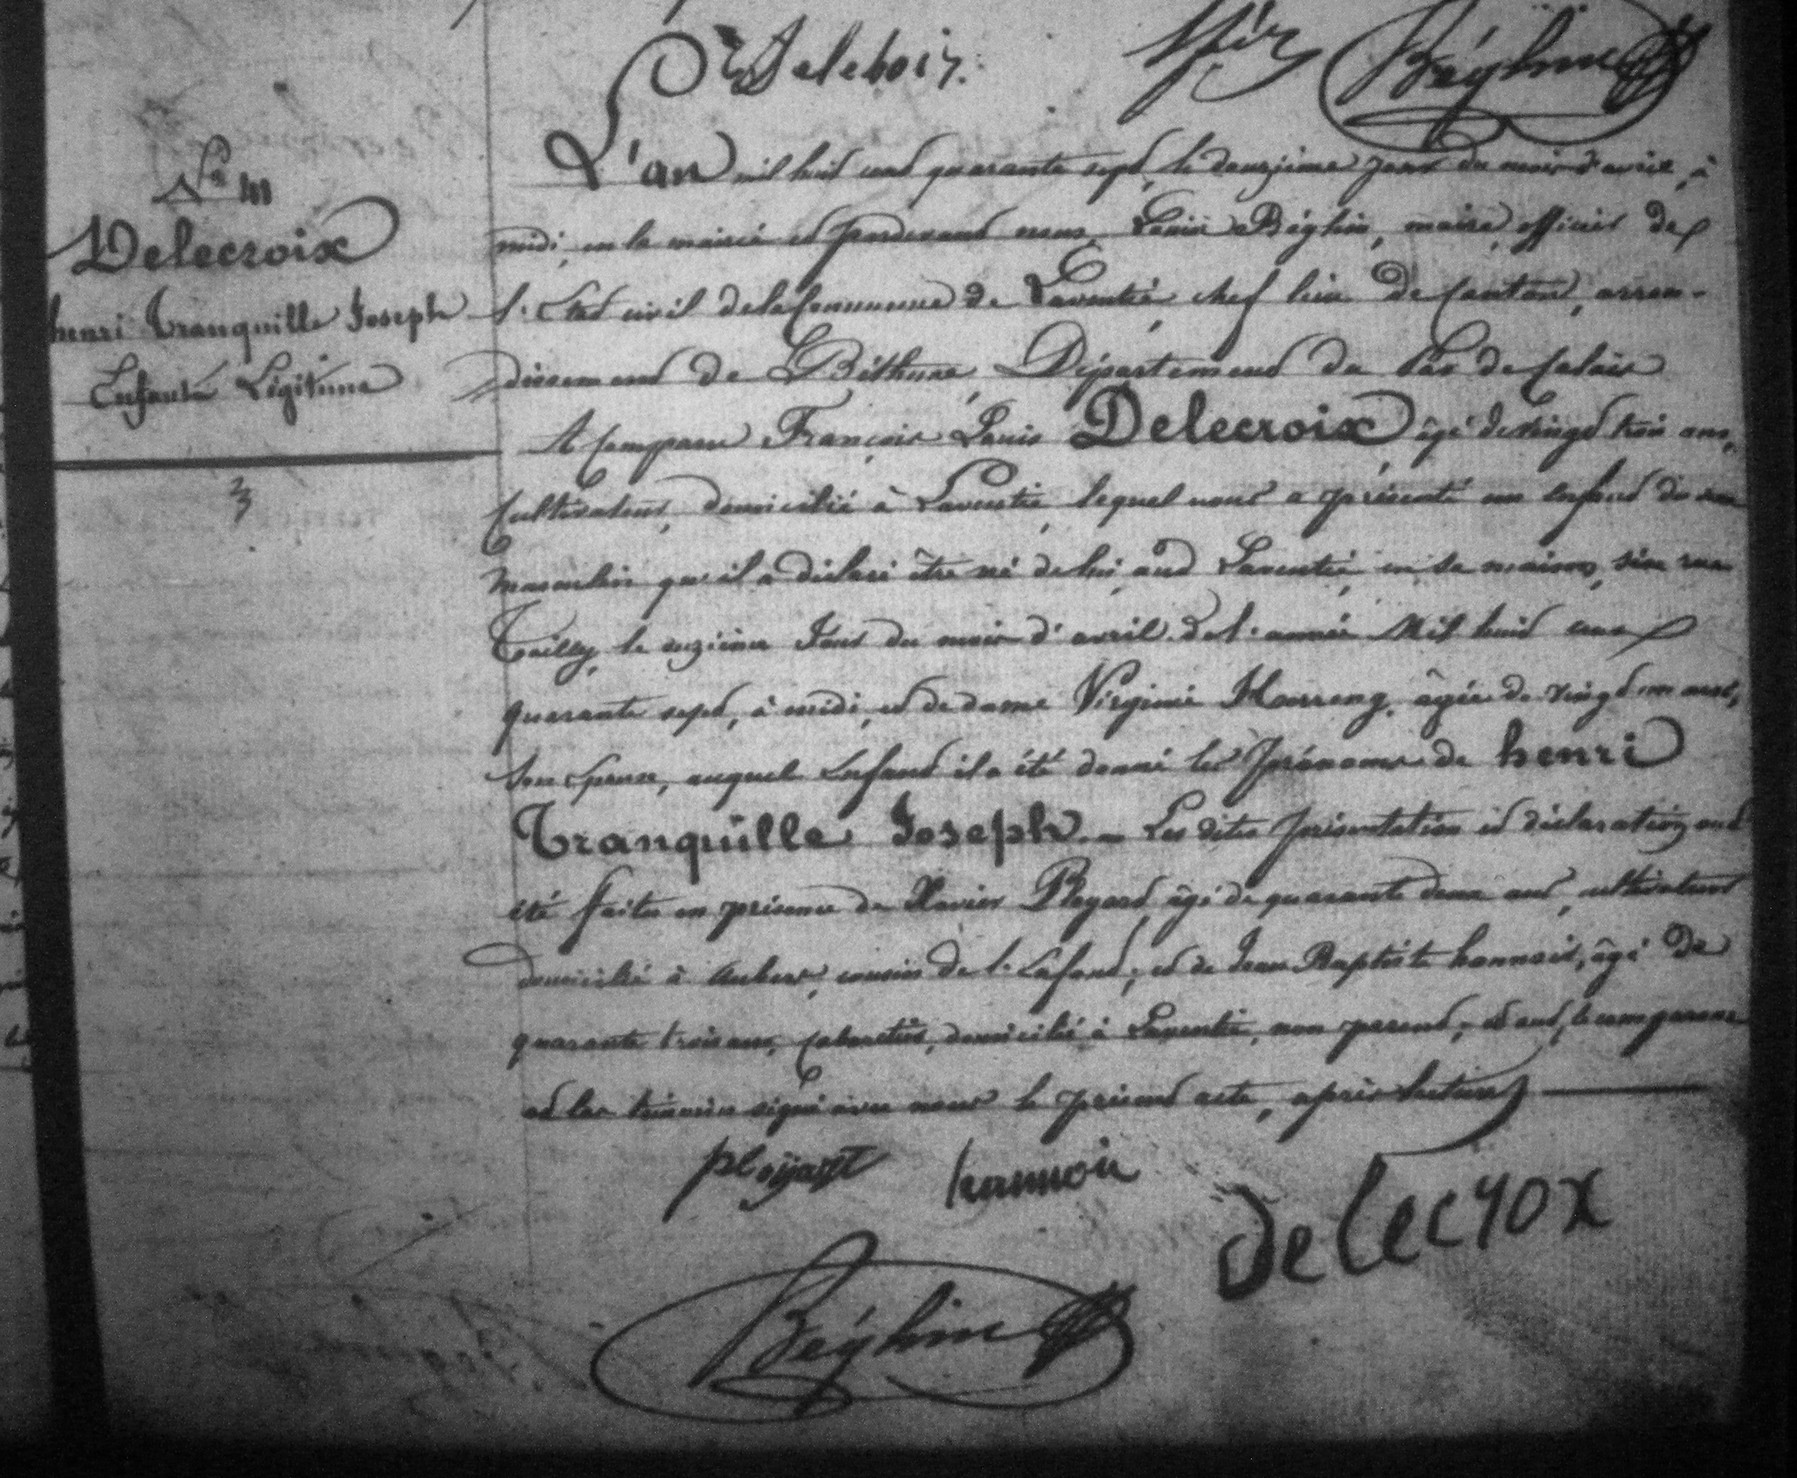 Delebois.
Béghin
L'an mil huit cent quarante sept, le douzième jour du mois d'avril, à
midi, en la mairie et pardevant nous, Louis Béghin, maire, officier de
l'État civil de la Commune de Laventie, chef lieu de Canton, arron-
dissement de Béthune, Département du Pas de Calais
A Comparu François Louis Delecroix âgé de vingt trois ans,
Cultivateur, domicilié à Laventie, lequel nous a présenté un enfant du sexe
masculin qu'il a déclaré être né de lui, aud Laventie, en sa maison, sise rue
Tailly, le onzième Jour du mois d'avril de l'année Mil huit cent
quarante sept, à midi, et de dame Virginie Harreng, âgée de vingt un ans,
Son Épouse, auquel Enfant il a été donné les Prénoms de henri
Tranquille Joseph. - Les dites présentation et déclaration ont
été faites en présence de Xavier Ployard, âgé de quarante deux ans, cultivateur
domicilié à Aubers, cousin de l'Enfant; et de Jean Baptiste hannoir, âgé de
quarante trois ans, Cabaretier, domicilié à Laventie, non parent; et ont, le comparant
et les témoins signé avec nous le présent acte, après lecture
ployart hannoir
delecrox
Béghin
Nº
Delecroix
henri Tranquille Joseph
Enfant Légitime
3